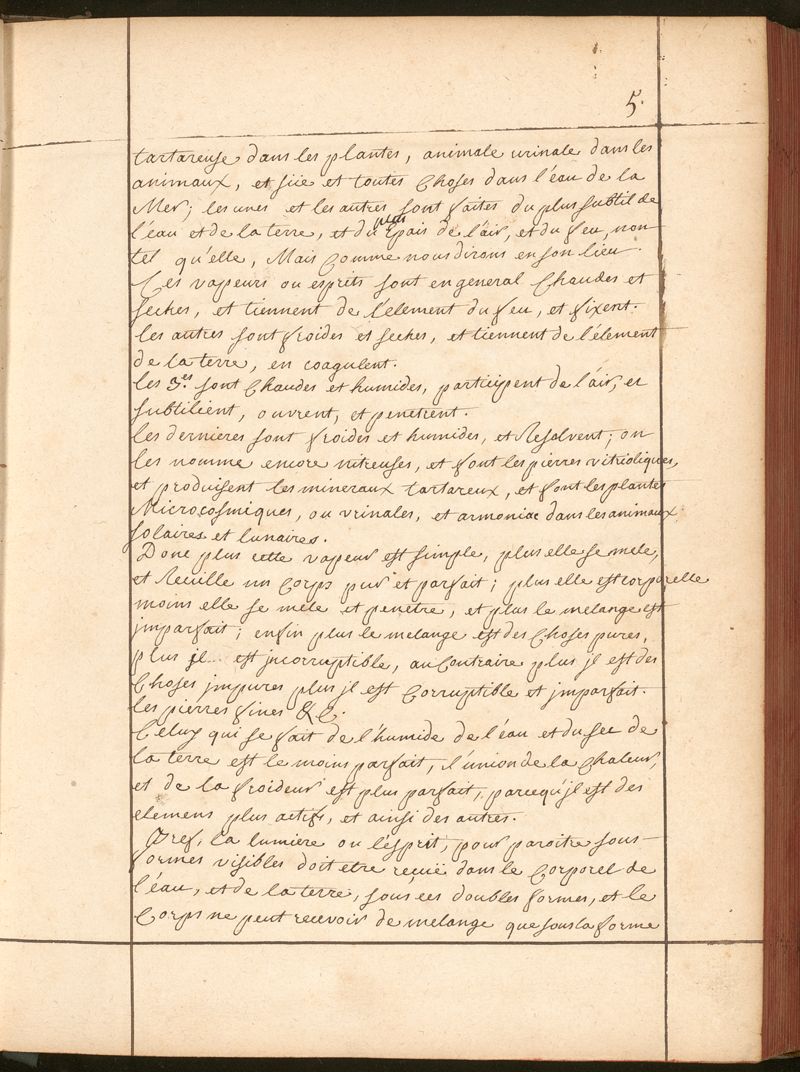 5.
tartareuse dans les plantes, animale urinale dans les
animaux, et siie et toutes Choses dans l'éau de la
Mer; les unes et les autres sont faites du plus subtil de
l'éau et de la terre, et du plus Epais de l'air, et du feu, non
tel qu'elle, Mais Comme nous dirons en son lieu.
Ces vapeurs ou esprits sont en general Chaudes et
seches, et tiennent de l'élement du feu, et fixent.
les autres sont froides et seches, et tiennent de l'élement
de la terre, en coagulent.
les 3.es sont Chaudes et humides, participent de l'air, et
subtilient, ouvrent, et penetrent.
les dernieres sont froides et humides, et Resolvent; on
les nomme encore nitreuses, et font les pierres vitrioliques,
et produisent les mineraux tartareux, et font les plantes
Microcosmiques, ou vrinales, et armoniac dans les animaux
solaires et lunaires.
Donc plus cette vapeur est simple, plus elle se mele,
et Reüille un Corps pur et parfait; plus elle est corporelle
moins elle se mele et penetre, et plus le melange est
jmparfait; enfin plus le melange est des Choses pures,
plus jl est jncorruptible, au Contraire plus jl est des
Choses jmpures plus jl est Corruptible et jmparfait.
les pierres fines &c.
Celuy qui se fait de l'humide de l'éau et du sec de
la terre est le moins parfait, l'union de la Chaleur,
et de la froideur est plus parfait, parcequ'jl est des
elemens plus actifs, et ainsi des autres.
Bref, la lumiere ou l'ésprit, pour paroitre sous
formes visibles doit etre reçuë dans le Corporel de
l'éau, et de la terre, sous ces doubles formes, et le
Corps ne peut recevoir de melange que sous la forme